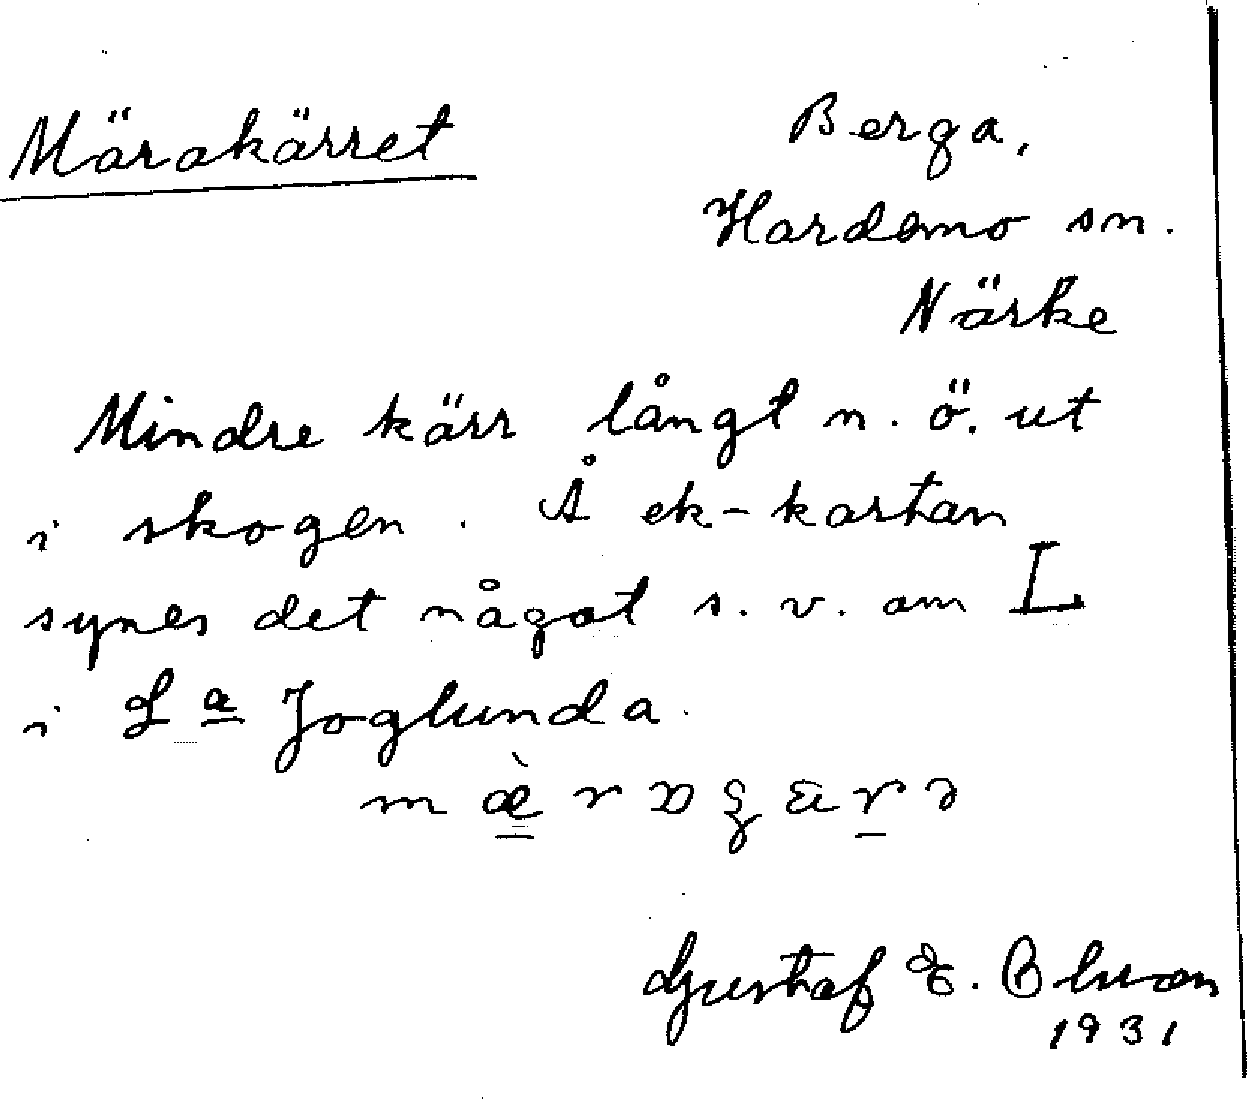 Märakärret
Berga,
Hardemo sn.
Närke
Mindre kärr långt n. ö. ut
i skogen. Å ek-kartan
synes det något s. v. om L
i La Joglunda.
Gustaf E. Olsson
1931